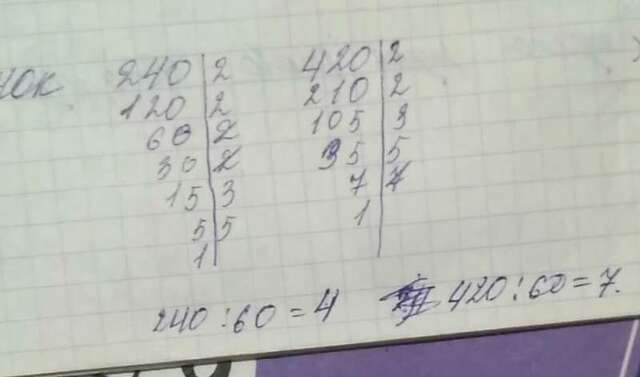 НОК
240 | 2 420 | 2
120 | 2 210 | 2
60 | 2 105 | 3
30 | 2 35 | 5
15 | 3 7 | 7
5 | 5 1
1
240 : 60 = 4 420 : 60 = 7.